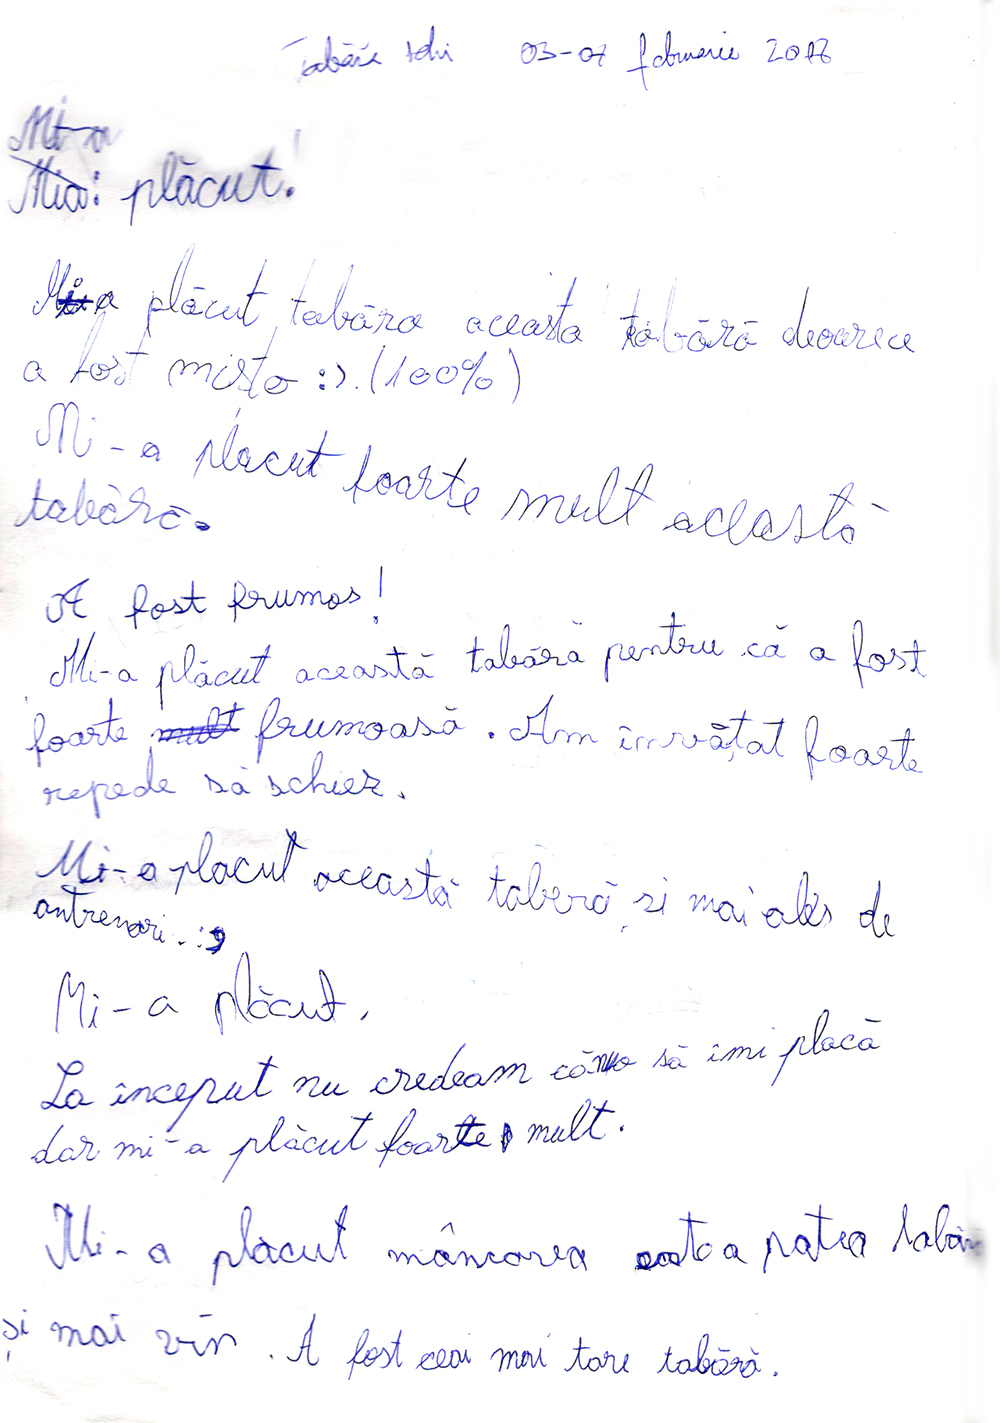 Tabăra schi 03-07 februarie 2017
Mi-a
Mia: plăcut!
Mi-a plăcut tabăra aceasta tabără deoarece
a fost misto :). (100%)
Mi-a placut foarte mult această
tabără.
A fost frumos!
Mi-a plăcut această tabără pentru că a fost
foarte mult frumoasă. Am învățat foarte
repede să schiez.
Mi-a placut această taberă și mai ales de
antrenori. :)
Mi-a plăcut.
La început nu credeam că să îmi placă
dar mi-a plăcut foarte mult.
Mi-a plăcut mâncarea a patra tabăra
și mai vin. A fost ceai mai tare tabără.